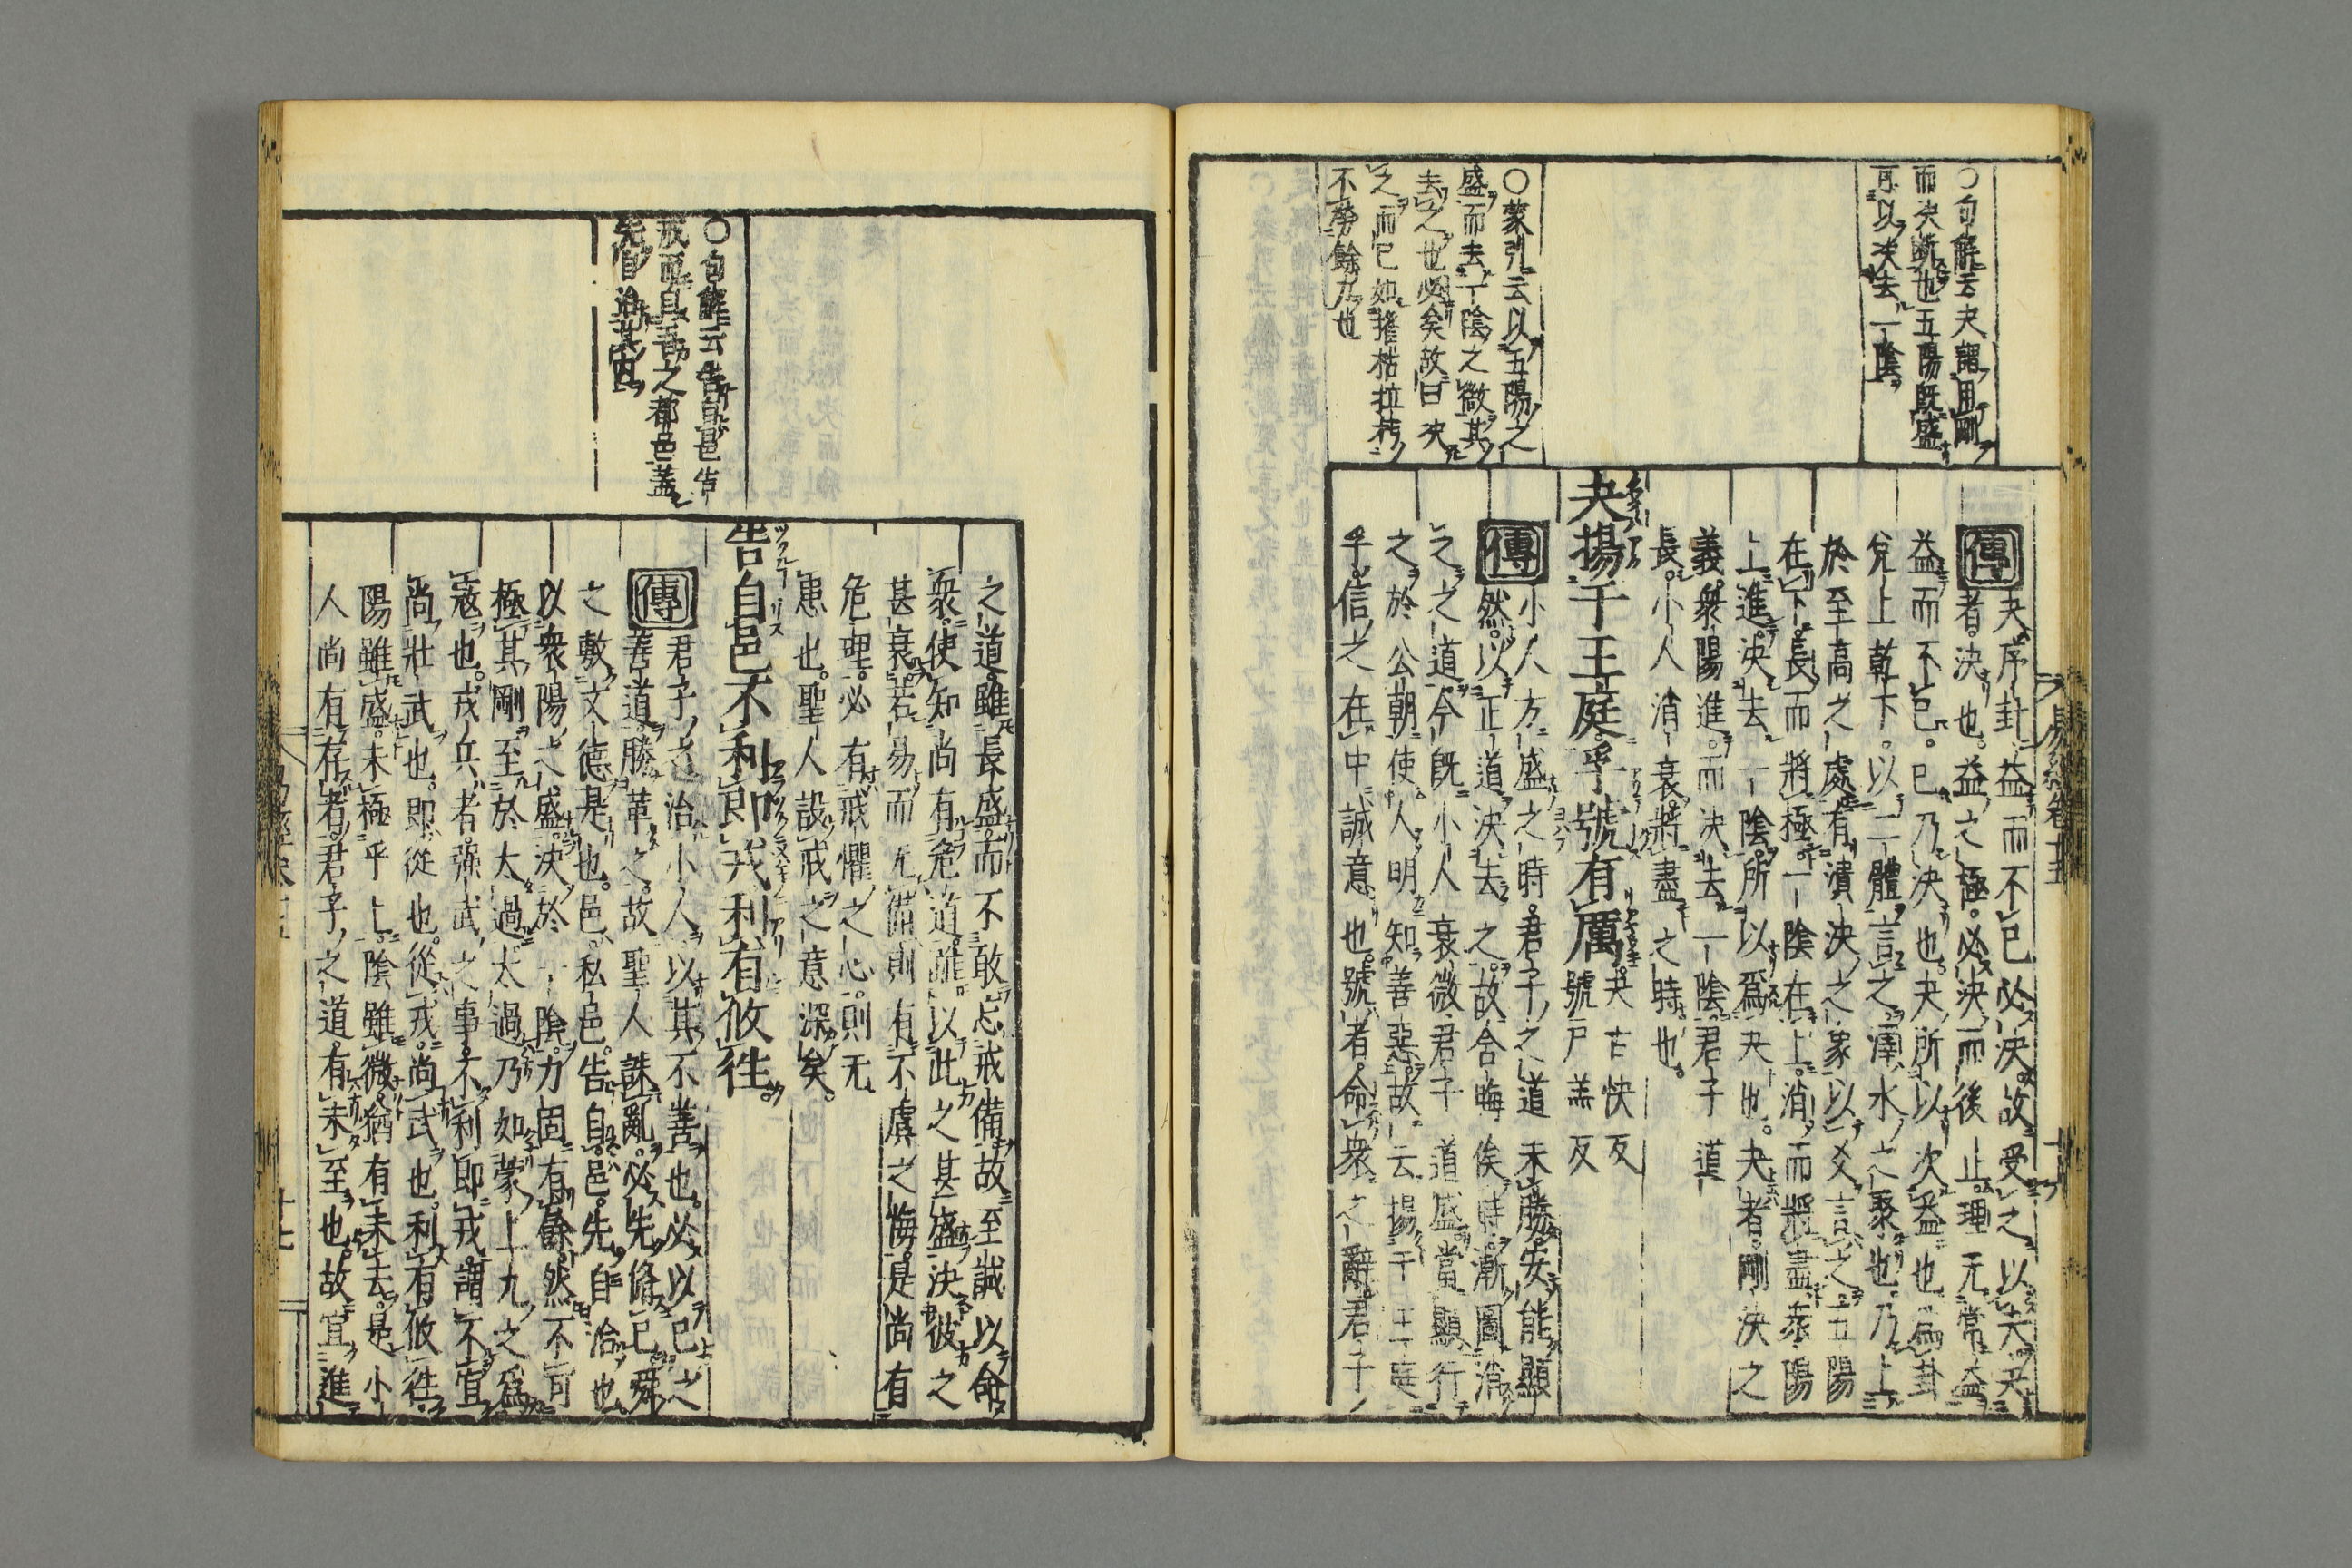 ○句解云夬謂用剛
而決斷也五陽既盛
可以決去一陰
○蒙引云以五陽之
盛而去一陰之微其
去之也必矣故曰決
之而已如摧枯拉朽
不勞餘力也
傳夬序卦益而不已必決故受之以夬夬
者決也益之極必決而後止理无常益
益而不已已乃決也夬所以次益也爲卦
兌上乾下以二體言之澤水之聚也乃上
於至高之處有潰決之象以爻言之五陽
在下長而將極一陰在上消而將盡衆陽
上進決去一陰所以爲夬也夬者剛決之
義衆陽進而決去一陰君子道
長小人消衰將盡之時也
夬揚于王庭孚號有厲夬古快反
號戶羔反
傳小人方盛之時君子之道未勝安能顯
然以正道決去之故含晦俟時漸圖消
之之道今既小人衰微君子道盛當顯行
之於公朝使人明知善惡故云揚于王庭
孚信之在中誠意也號者命衆之辭君子
之道雖長盛而不敢忘戒備故至誠以命
衆使知尚有危道雖以此之甚盛決彼之
甚衰若易而无備則有不虞之悔是尚有
危理必有戒懼之心則无
患也聖人設戒之意深矣
○句解云告自邑告
戒而自吾之都邑蓋
先自治其內
告自邑不利即戎利有攸往
傳君子之治小人以其不善也必以己之
善道勝革之故聖人誅亂必先脩己舜
之敷文德是也邑私邑告自邑先自治也
以衆陽之盛決於一陰力固有餘然不可
極其剛至於太過太過乃如蒙上九之爲
寇也戎兵者强武之事不利即戎謂不宜
尚壯武也即從也從戎尚武也利有攸往
陽雖盛未極乎上陰雖微猶有未去是小
人尚有存者君子之道有未至也故宜進
十七